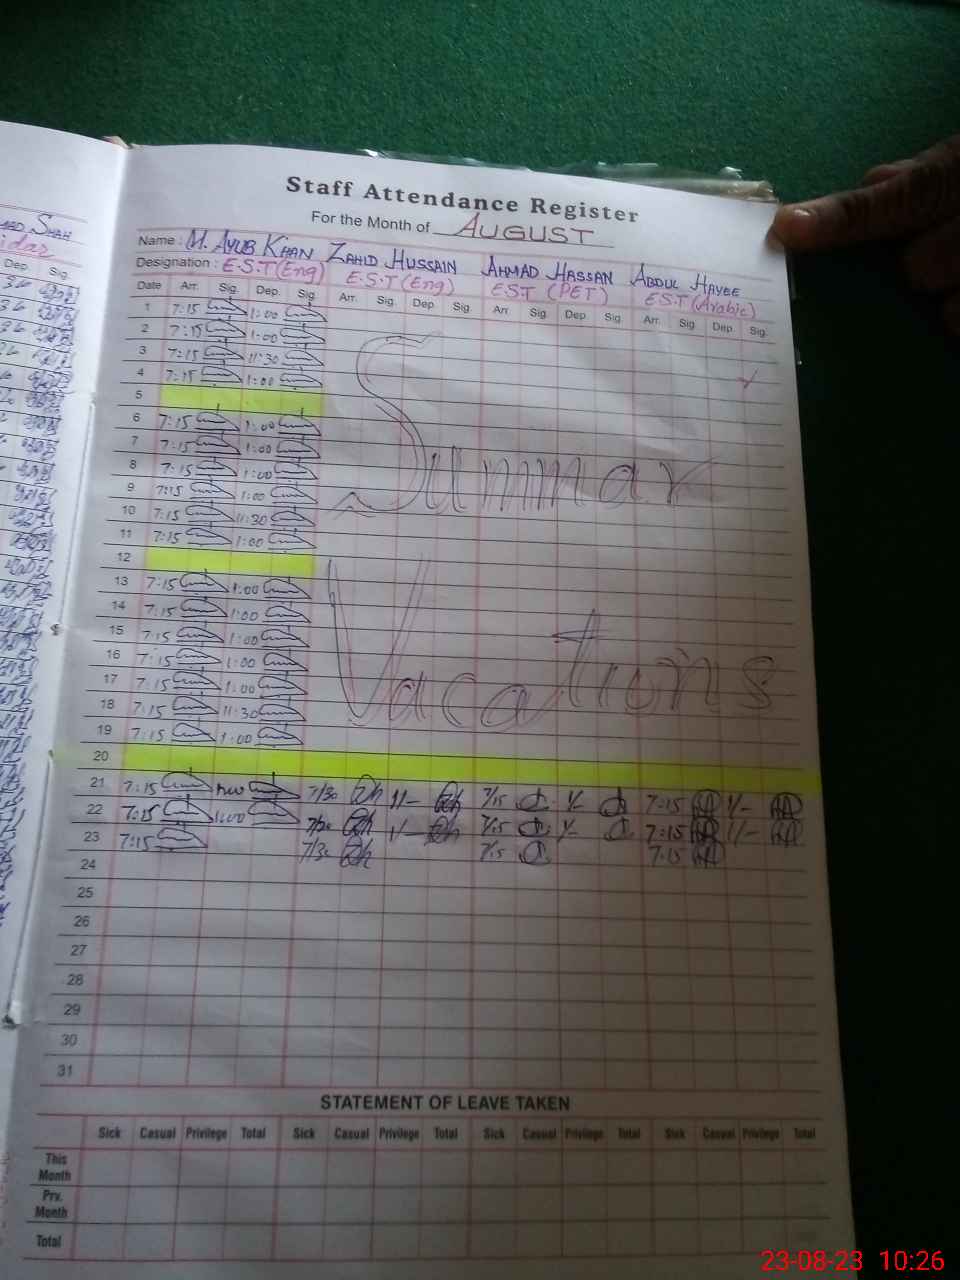 Staff Attendance Register
For the Month of AUGUST
Name : M. AYUB KHAN ZAHID HUSSAIN AHMAD HASSAN ABDUL HAYEE
Designation : E.S.T (Eng) E.S.T (Eng) EST (PET) E.S.T (Arabic)
Date Arr. Sig. Dep. Sig. Arr. Sig. Dep. Sig. Arr. Sig. Dep. Sig. Arr. Sig. Dep. Sig.
1 7:15 1:00
2 7:15 1:00
3 7:15 11:30
4 7:15 1:00
5
6 7:15 1:00
7 7:15 1:00
8 7:15 1:00
9 7:15 1:00
10 7:15 11:30
11 7:15 1:00
12
13 7:15 1:00
14 7:15 1:00
15 7:15 1:00
16 7:15 1:00
17 7:15 1:00
18 7:15 11:30
19 7:15 1:00
Summar
Vacations
20
21 7:15 7/30 1/- 7/15 1/- 7:15 1/-
22 7:15 1:00 7/30 1/- 7/15 1/- 7:15 1/-
23 7:15 7/30 7/15 7:15
24
25
26
27
28
29
30
31
STATEMENT OF LEAVE TAKEN
Sick Casual Privilege Total Sick Casual Privilege Total Sick Casual Privilege Total Sick Casual Privilege Total
This Month
Prv. Month
Total
SHAH
Dep. Sig.
23-08-23 10:26